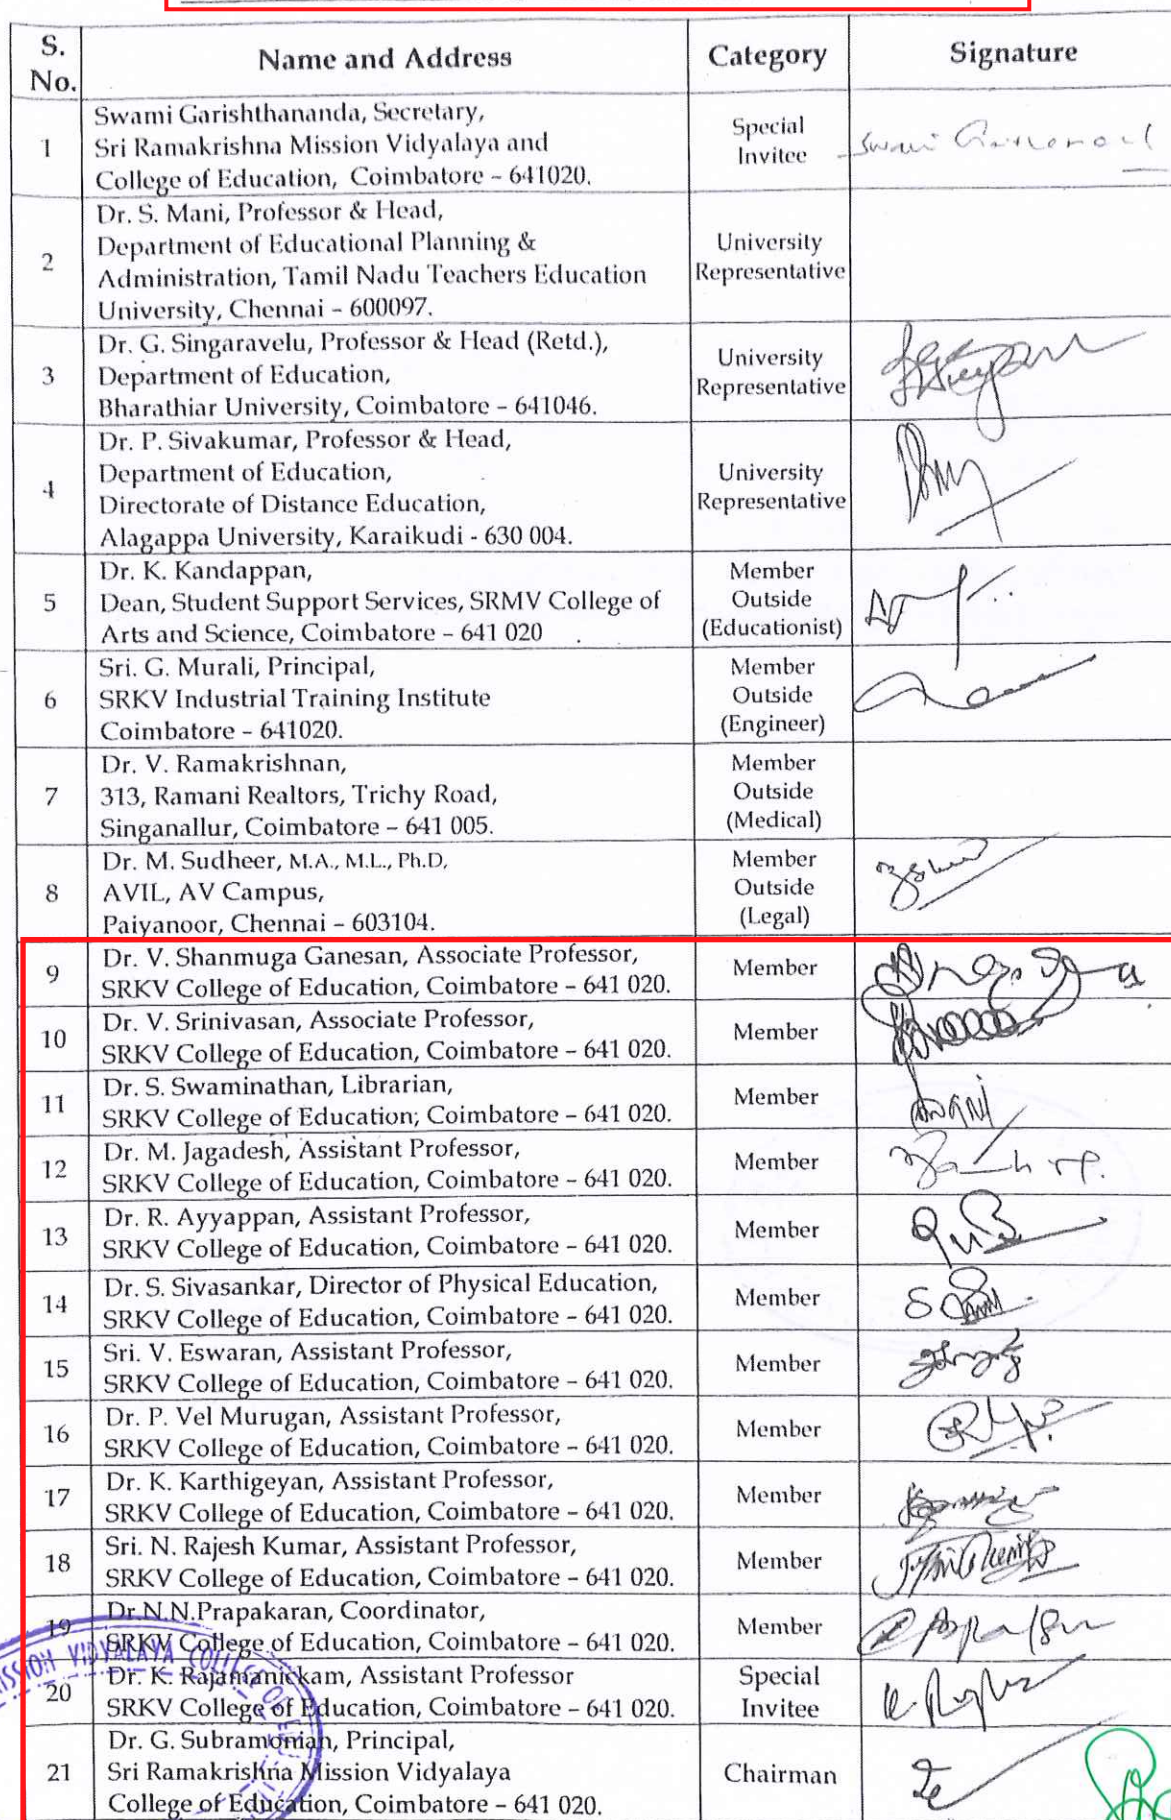 S. No. Name and Address Category Signature
1 Swami Garishthananda, Secretary,
Sri Ramakrishna Mission Vidyalaya and
College of Education, Coimbatore – 641020.
Special
Invitee
Swami
2 Dr. S. Mani, Professor & Head,
Department of Educational Planning &
Administration, Tamil Nadu Teachers Education
University, Chennai – 600097.
University
Representative
3 Dr. G. Singaravelu, Professor & Head (Retd.),
Department of Education,
Bharathiar University, Coimbatore – 641046.
University
Representative
4 Dr. P. Sivakumar, Professor & Head,
Department of Education,
Directorate of Distance Education,
Alagappa University, Karaikudi - 630 004.
University
Representative
5 Dr. K. Kandappan,
Dean, Student Support Services, SRMV College of
Arts and Science, Coimbatore – 641 020
Member
Outside
(Educationist)
6 Sri. G. Murali, Principal,
SRKV Industrial Training Institute
Coimbatore – 641020.
Member
Outside
(Engineer)
7 Dr. V. Ramakrishnan,
313, Ramani Realtors, Trichy Road,
Singanallur, Coimbatore – 641 005.
Member
Outside
(Medical)
8 Dr. M. Sudheer, M.A., M.L., Ph.D,
AVIL, AV Campus,
Paiyanoor, Chennai – 603104.
Member
Outside
(Legal)
9 Dr. V. Shanmuga Ganesan, Associate Professor,
SRKV College of Education, Coimbatore – 641 020.
Member
10 Dr. V. Srinivasan, Associate Professor,
SRKV College of Education, Coimbatore – 641 020.
Member
11 Dr. S. Swaminathan, Librarian,
SRKV College of Education; Coimbatore – 641 020.
Member
12 Dr. M. Jagadesh, Assistant Professor,
SRKV College of Education, Coimbatore – 641 020.
Member
13 Dr. R. Ayyappan, Assistant Professor,
SRKV College of Education, Coimbatore – 641 020.
Member
14 Dr. S. Sivasankar, Director of Physical Education,
SRKV College of Education, Coimbatore – 641 020.
Member
15 Sri. V. Eswaran, Assistant Professor,
SRKV College of Education, Coimbatore – 641 020.
Member
16 Dr. P. Vel Murugan, Assistant Professor,
SRKV College of Education, Coimbatore – 641 020.
Member
17 Dr. K. Karthigeyan, Assistant Professor,
SRKV College of Education, Coimbatore – 641 020.
Member
18 Sri. N. Rajesh Kumar, Assistant Professor,
SRKV College of Education, Coimbatore – 641 020.
Member
19 Dr.N.N.Prapakaran, Coordinator,
SRKV College of Education, Coimbatore – 641 020.
Member
20 Dr. K. Rajamanickam, Assistant Professor
SRKV College of Education, Coimbatore – 641 020.
Special
Invitee
21 Dr. G. Subramonian, Principal,
Sri Ramakrishna Mission Vidyalaya
College of Education, Coimbatore – 641 020.
Chairman
VIDYALAYA COLLEGE OF